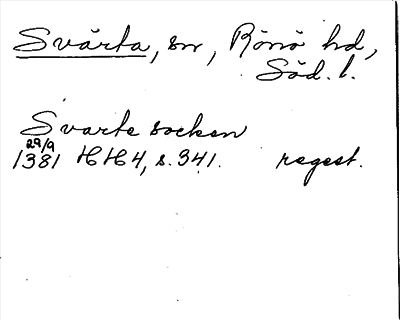 Svärta, sn, Rönö hd,
Söd. l.
Svarte socken
29/9
1381 HH4, s. 341. regest.